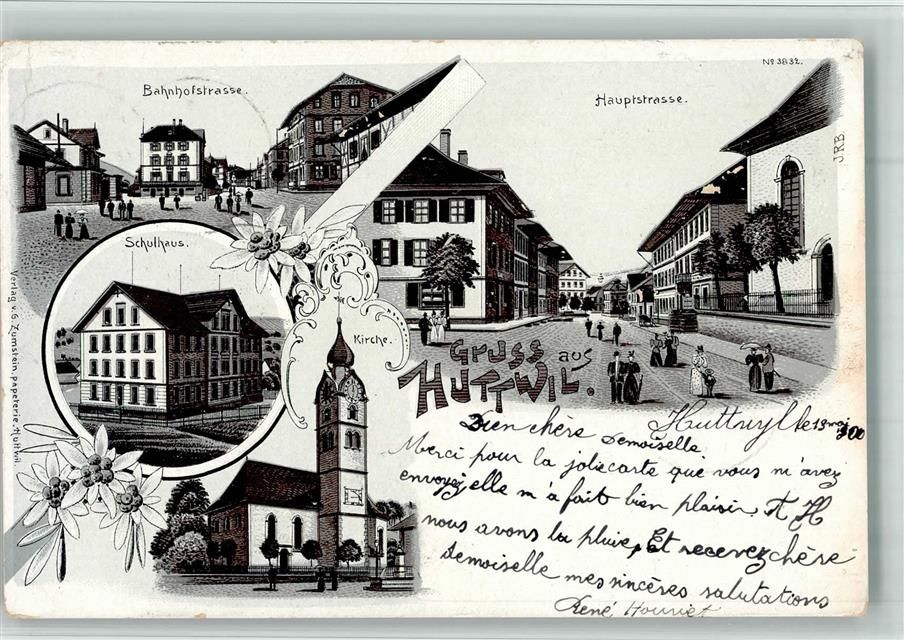 Bahnhofstrasse.
Nº 3832.
Hauptstrasse.
JRB.
Schulhaus.
Kirche.
Verlag v. G. Zumstein, papeterie, Huttwil.
GRUSS aus
HUTTWIL.
Huttwyl le 19 mai
Bien chère
Demoiselle.
Merci pour la jolie carte que vous m'avez
envoyez elle m'a fait bien plaisir. A H
nous avons la pluie, Et recevez chère
demoiselle mes sincères salutations
René Houriet